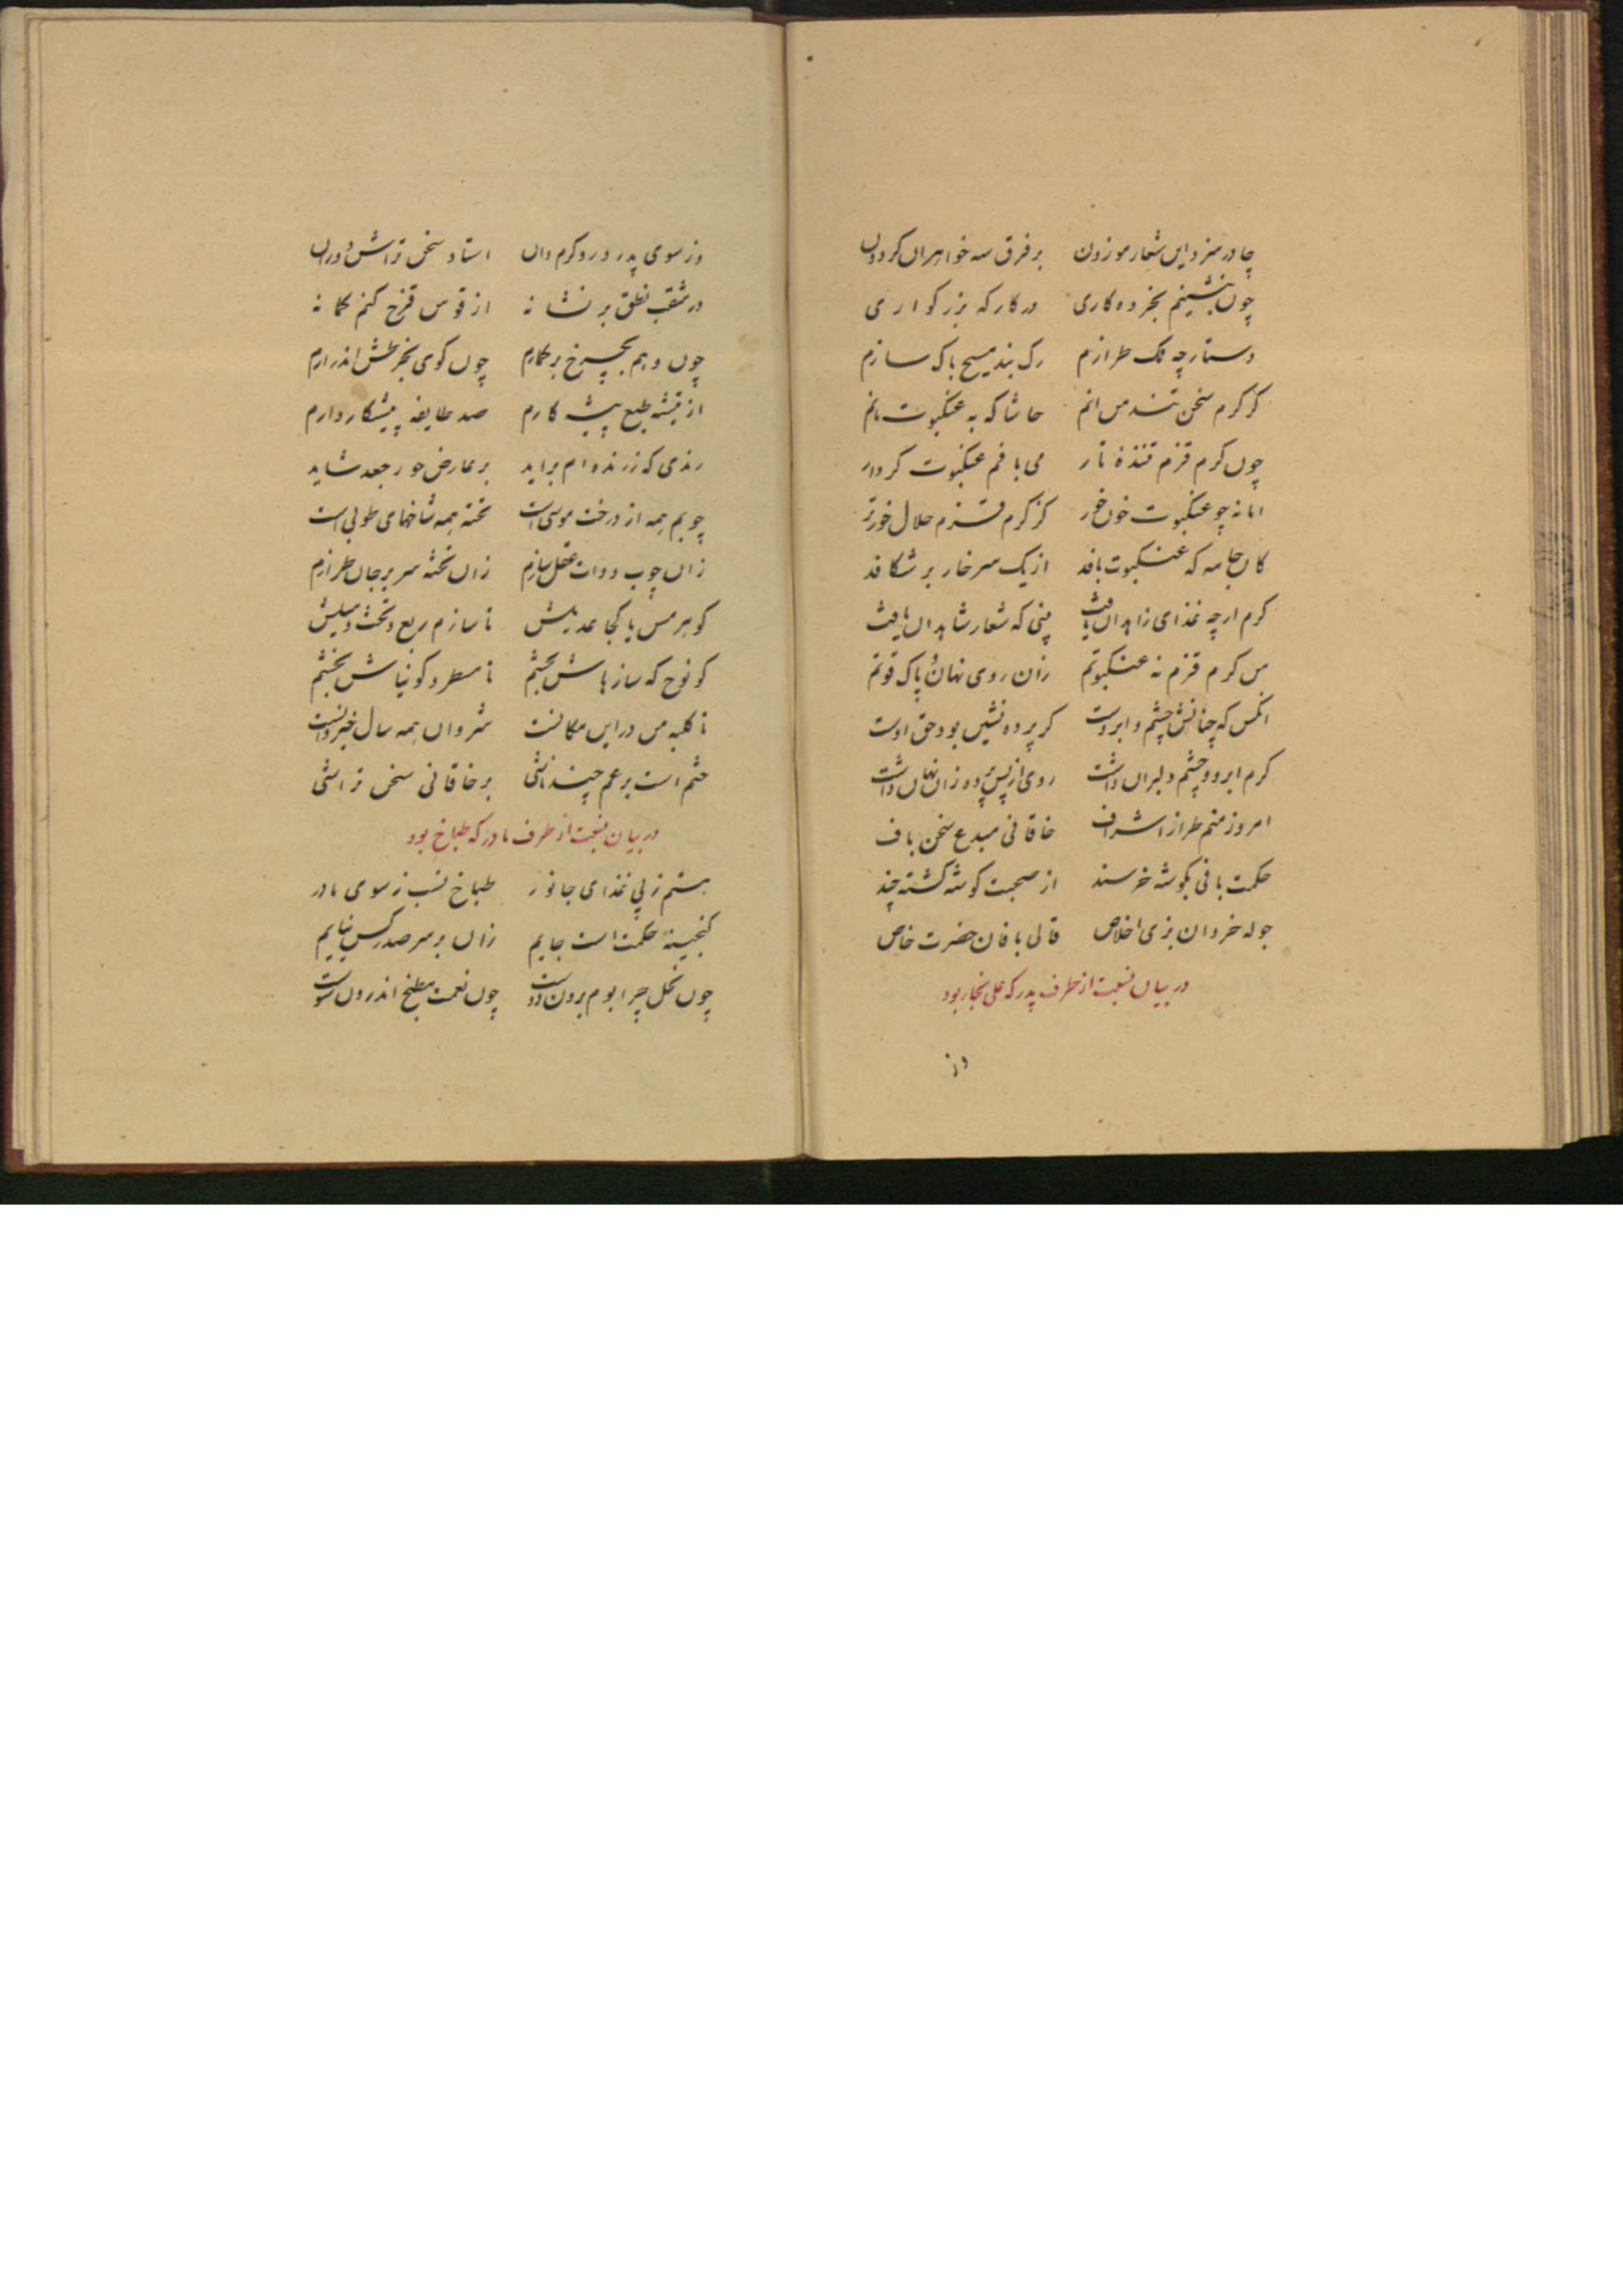 چادر سزد این شعار موزون بر فرق سه خواهران کردون
چون بنشینم بخرده کاری در کارکه بزرکواری
دستارچه ملک طرازم رک بند مسیح پاک سازم
کر کرم سخن تنند من انم حاشا که به عنکبوت مانم
چون کرم قزم تننده تار می بافم عنکبوت کردار
اما نه چو عنکبوت خون خور کز کرم قزم حلال خورتر
کان جامه که عنکبوت بافد از یک سر خار بر شکافد
کرم ارچه غذای زاهدان یافت بینی که شعار شاهدان بافت
من کرم قزم نه عنکبوتم زان روی نهان و پاک قوتم
انکس که چنانش چشم و ابروست کر پرده نشین بود حق اوست
کرم ابرو و چشم دلبران داشت روی از پس پرده زان نهان داشت
امروز منم طراز اشراف خاقانی مبدع سخن باف
حکمت بافی بکوشه خرسند از صحبت کوشه کشته چند
جوله خردان بزی اخلاص قالی بافان حضرت خاص
در بیان نسبت از طرف پدر که علی نجار بود
وز
وز سوی پدر درودکرم دان استاد سخن تراش دوران
در مثقب نطق بر نشانه از قوس قزح کنم کمانه
چون وهم بچرخ برکمارم چون کوی بخرطش اندر ارم
از تیشه طبع پیشه کارم صد طایفه پیشکار دارم
رندی که ز رنده ام براید بر عارض حور جعد شاید
چوبم همه از درخت موسی است تخته همه شاخهای طوبی است
زان چوب دوات عقل سازم زان تخته سریر جان طرازم
کو هرمس یا کجا عدیلش تا سازم ربع و تخت و میلش
کو نوح که سازهاش بخشم تا مسطر و کونیاش بخشم
تا کلبه من در این مکانست شروان همه سال خیروانست
ختم است برغم چند ناشی بر خاقانی سخن تراشی
در بیان نسبت از طرف مادر که طباخ بود
هستم ز پی غذای جانور طباخ نسب ز سوی مادر
کنجینه حکمت است جایم زان بر سر صدر کس نیایم
چون نخل چرا بوم برون دوست چون نعمت مطبخ اندرون سوست